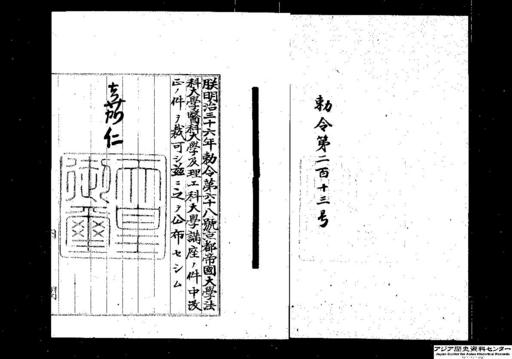 勅令第二百十三号
朕明治三十六年勅令第六十八號京都帝國大學法
科大學醫科大學及理工科大學講座ノ件中改
正ノ件ヲ裁可シ茲ニ之ヲ公布セシム
嘉仁
天皇
御璽
アジア歴史資料センター
Japan Center for Asian Historical Records